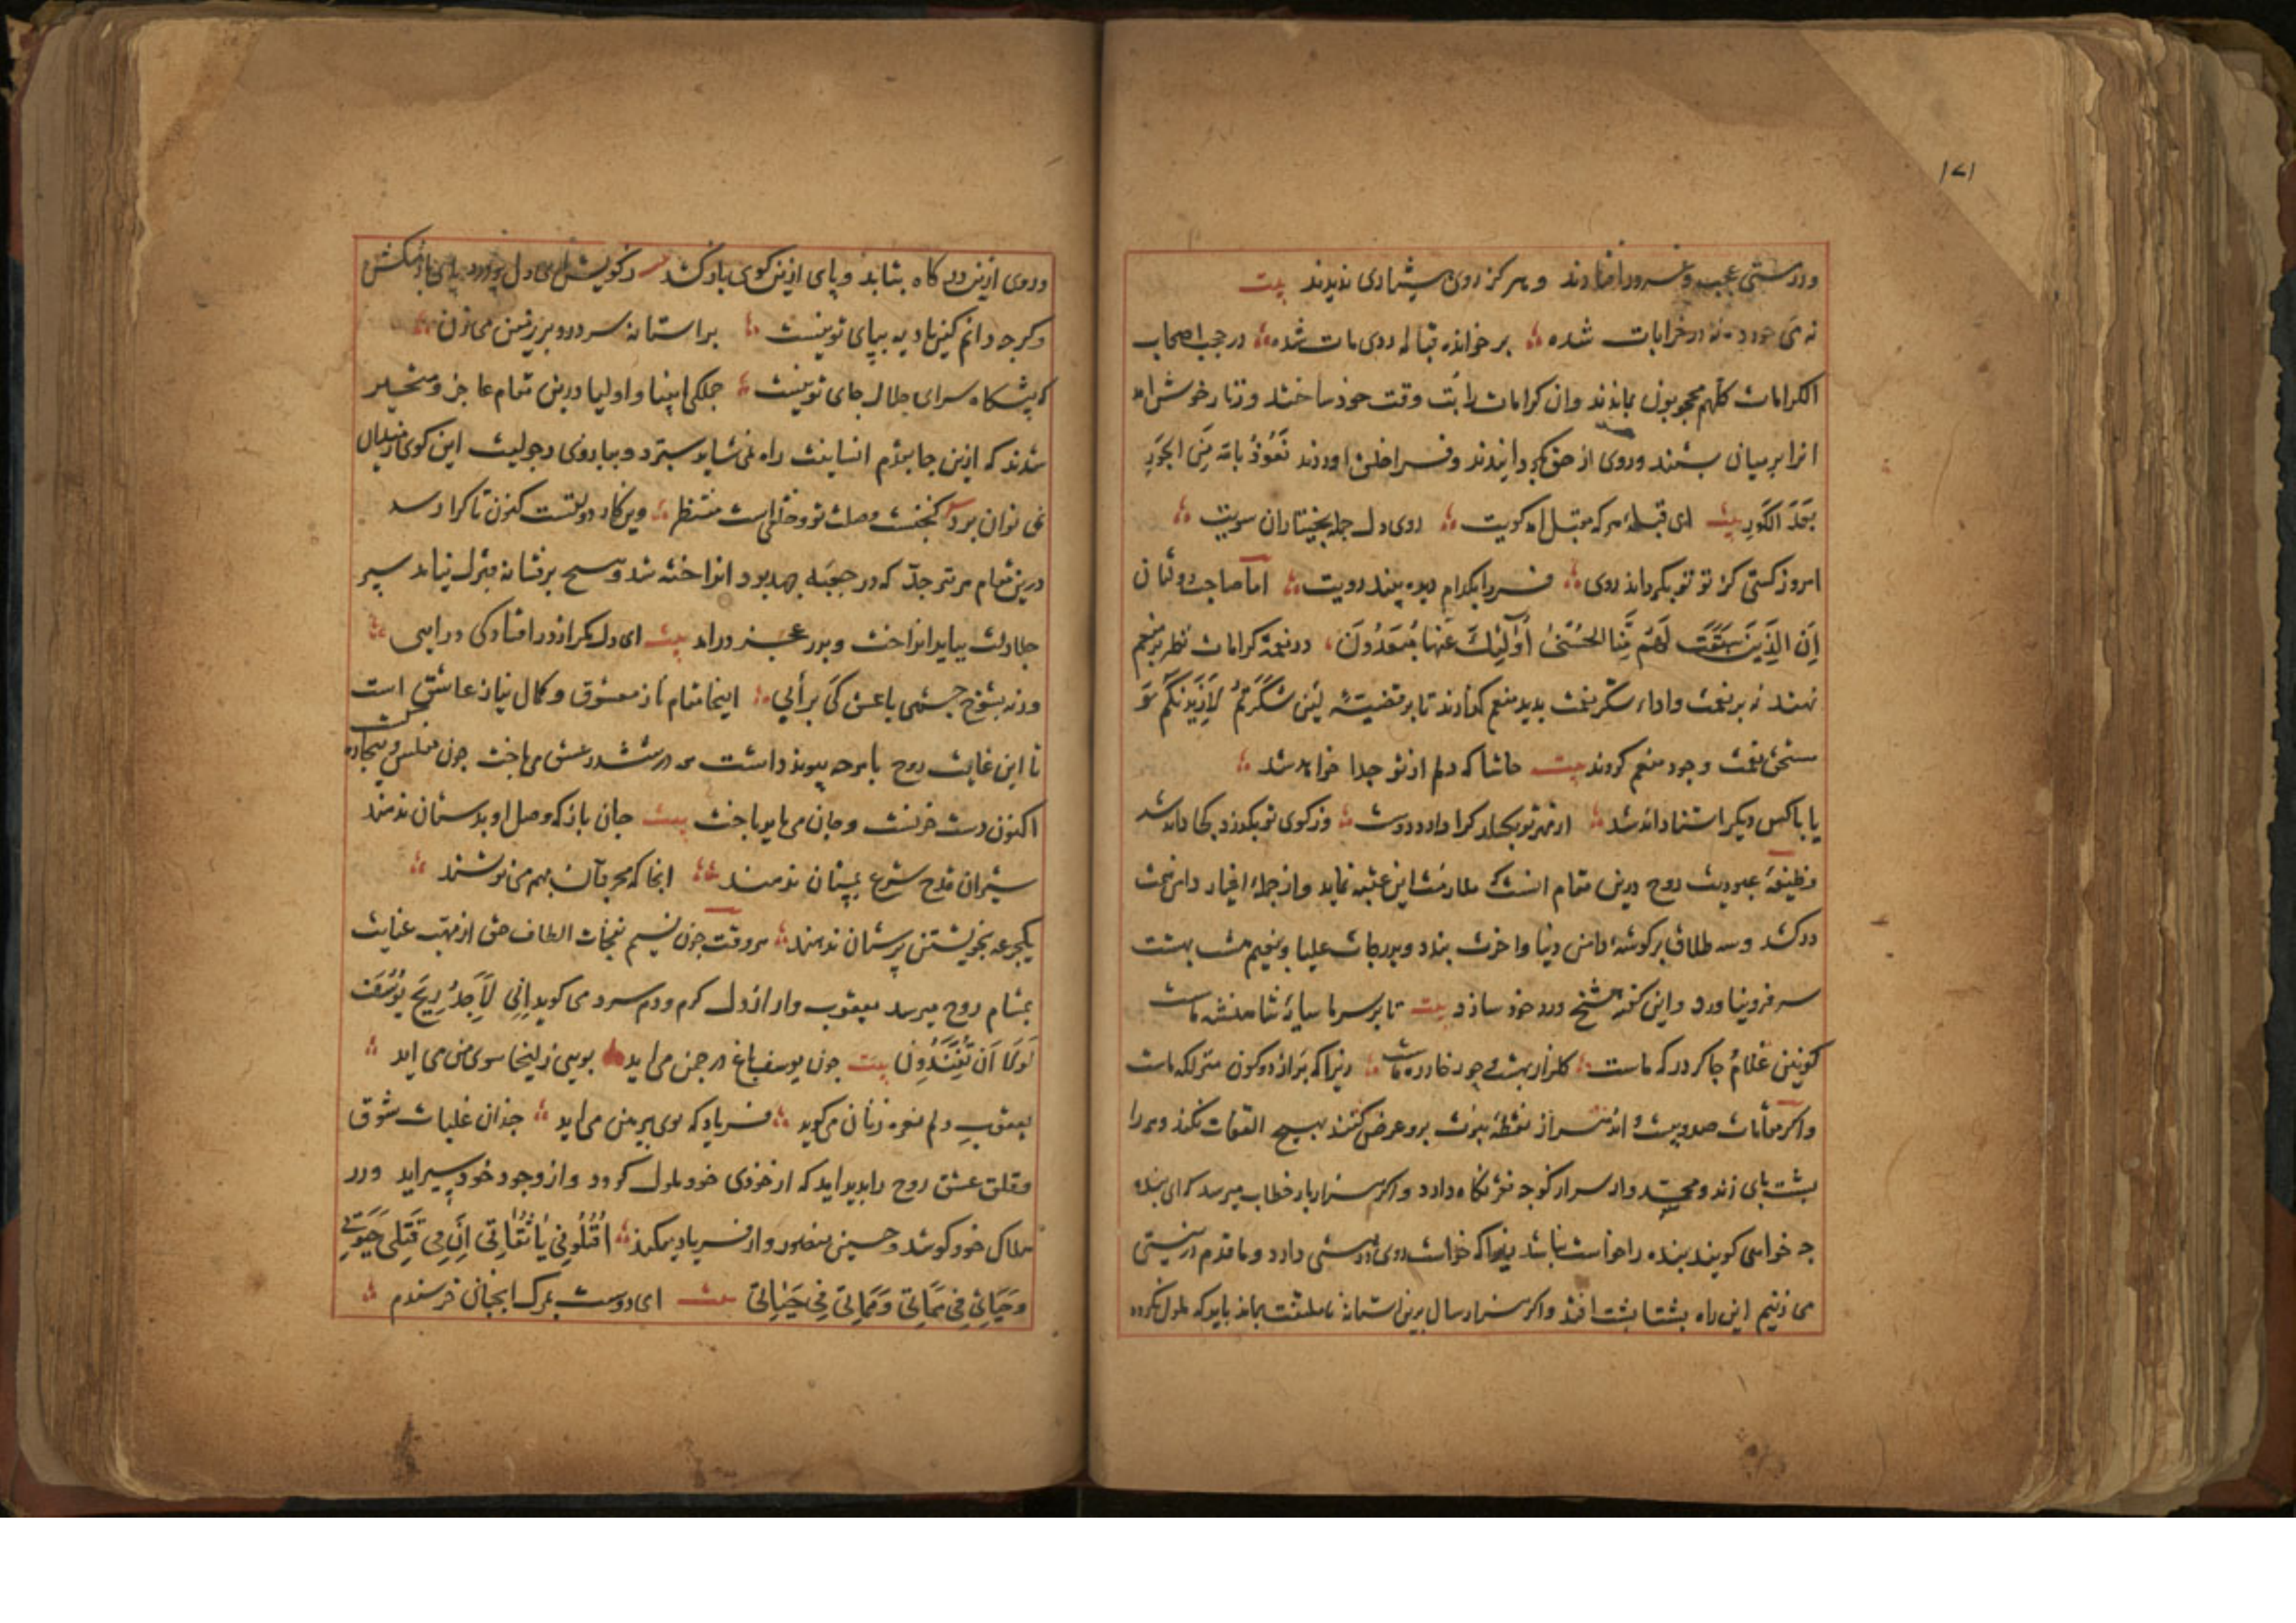 ۱۷۱
ودرستی عجب وغرور افتادند وهرکز روی هشیاری ندیدند بیت
نه می خورده نه در خرابات شده بر خوانده قباله روی مات شده در حجب اصحاب
الکرامات کلهم محجوبون بماندند وان کرامات را بت وقت خود ساختند وزنار خوش
انرا بر میان بستند وروی از حق بکردانیدند وفرا خلق اوردند نَعُوذُ بالله مِنَ الحَورِ
بَعدَ الکَورِ بیت ای قبله هرکه مقبل امد کویت روی دل جمله بختیاران سویت
امروز کسی کز تو بکرداند روی فردا بکدام دیده بیند رویت اما صاحب دولتان
اِنَّ الَّذِینَ سَبَقَت لَهُم مِنَّا الحُسنَی اُولٰئِکَ عَنهَا مُبعَدُونَ در نعمت کرامات نظر بر منعم
نهند نه بر نعمت واداء شکر نعمت بدید منعم کذارند تا بر قضیته لَئِن شَکَرتُم لَاَزِیدَنَّکُم
مستحق نعمت وجود منعم کردند بیت حاشا که دلم از تو جدا خواهد شد
یا با کس دیکر اشنا خواهد شد از مهر تو بکسلد کرا دارد دوست وز کوی تو بکذرد کجا خواهد شد
وظیفهٔ عبودیت روح درین مقام انست که ملازمت این عتبه نماید واز جملهٔ اغیار دامن همت
درکشد وسه طلاق بر کوشهٔ دامن دنیا واخرت بندد وبدرجات علیا ونعیم هشت بهشت
سر فرو نیاورد واین کفته شیخ ورد خود سازد بیت تا بر سر ما سایهٔ شاهنشه ماست
کونین غلام چاکر درکه ماست کلزار بهشت وحور خار ره ماست زیرا که برون از دو کون منزلکه ماست
واکر مقامات صد وبیست واند هزار نقطهٔ نبوت برو عرض کنند بهیچ التفات نکند وهمه را
پشت پای زند واز سر کوچه خود نکاه دارد واکر هزار بار خطاب میرسد که ای بنده
چه خواهی کوید بنده را خواست نباشد زیرا که خواست روی در هستی دارد وما قدم در نیستی
می زنیم این راه پشتاپشت افتد واکر هزار سال برین استانه ناملتفت بماند باید که ملول نکردد
وروی ازین درکاه نتابد وپای ازین کوی باز نکشد در کویش ای دل پای باز مکش
وکرچه دانم کین بادیه بپای تو نیست بر استانه سر درد بر زمین می زن
که پیشکاه سرای جلال جای تو نیست جملکی انبیا واولیا درین مقام عاجز ومتحیر
شدند که ازین جا بقدم انسانیت راه نمی شاید سپرد وببازوی رجولیت این کوی ز میدان
نمی توان برد کنجیست وصلت تو وخلقی است منتظر وین کار دولتست کنون تا کرا رسد
درین مقام هر تیر جد که در جعبه جهد بود انداخته شد وهیچ بر نشانه قبول نیامد سپر
جلادت بباید انداخت وبدر عجز درامد بیت ای دل مکر از در افتادکی درایی
ورنه بشوخ چشمی با عشق کی برایی اینجا مقام ناز معشوق وکمال نیاز عاشق است
تا این غایت روح با هرچه پیوند داشت در ششدر عشق می باخت چون مفلس وبیچاره کشت
اکنون دست خونست وجان می باید باخت بیت جان باز که وصل او بدستان ندهند
شیر از قدح شرع بمستان ندهند انجا که مجردان بهم می نوشند
یکجرعه بخویشتن پرستان ندهند هر وقت چون نسیم نفحات الطاف حق از مهب عنایت
بمشام روح میرسد یعقوب وار از دل کرم ودم سرد می کوید اِنِّی لَاَجِدُ رِیحَ یُوسُفَ
لَولَا اَن تُفَنِّدُونِ بیت چون یوسف باغ در چمن می اید بویی ز زلیخا سوی من می اید
یعقوب دلم نعره زنان می کوید فریاد که بوی پیرهن می اید چندان غلبات شوق
وقلق عشق روح را بدید اید که از خودی خود ملول کردد واز وجود خود سیر اید ودر
هلاک خود کوشد وحسین منصور وار فریاد میکند اُقتُلُونِی یَا ثِقَاتِی اِنَّ فِی قَتلِی حَیَوتِی
وَحَیَاتِی فِی مَمَاتِی وَمَمَاتِی فِی حَیَاتِی بیت ای دوست بمرک انجنان خرسندم